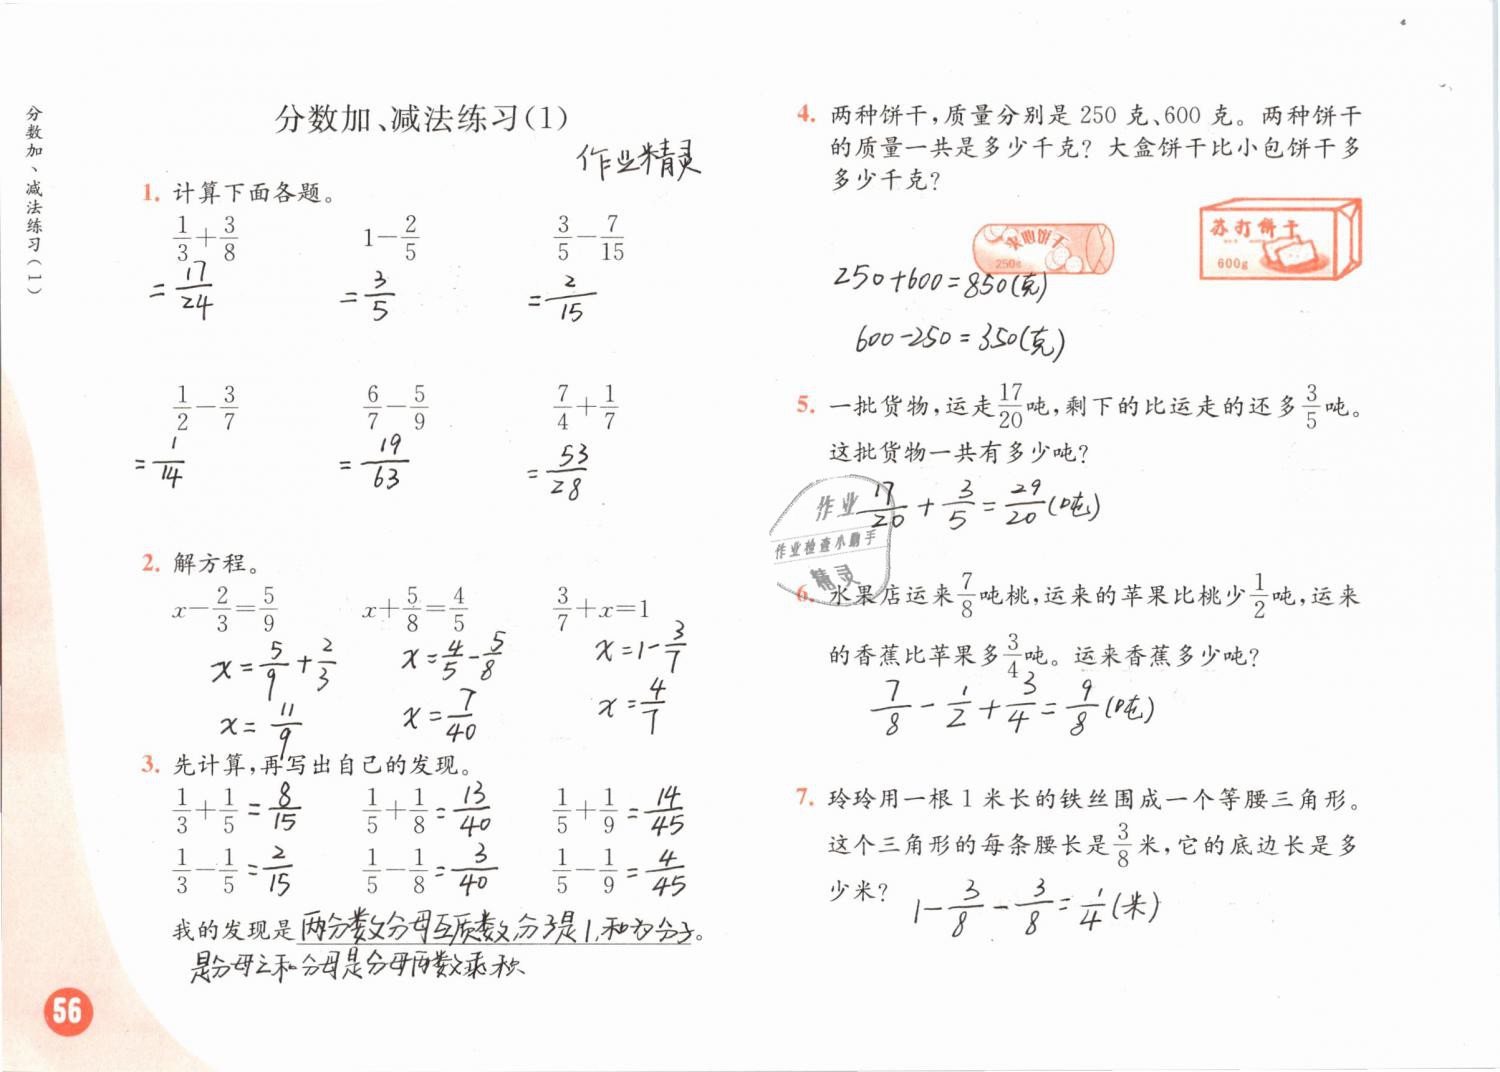 分数加、减法练习(1)
分数加、减法练习(1)
作业精灵
1. 计算下面各题。
1/3+3/8 1-2/5 3/5-7/15
=17/24 =3/5 =2/15
1/2-3/7 6/7-5/9 7/4+1/7
=1/14 =19/63 =53/28
2. 解方程。
x-2/3=5/9 x+5/8=4/5 3/7+x=1
x=5/9+2/3 x=4/5-5/8 x=1-3/7
x=11/9 x=7/40 x=4/7
3. 先计算,再写出自己的发现。
1/3+1/5=8/15 1/5+1/8=13/40 1/5+1/9=14/45
1/3-1/5=2/15 1/5-1/8=3/40 1/5-1/9=4/45
我的发现是两分数分母互质数,分子是1,和为分子。
是分母之和分母是分母两数乘积
56
4. 两种饼干,质量分别是250克、600克。两种饼干
的质量一共是多少千克?大盒饼干比小包饼干多
多少千克?
夹心饼干
250g
苏打饼干
600g
250+600=850(克)
600-250=350(克)
5. 一批货物,运走17/20吨,剩下的比运走的还多3/5吨。
这批货物一共有多少吨?
17/20+3/5=29/20(吨)
作业
作业检查小助手
精灵
6. 水果店运来7/8吨桃,运来的苹果比桃少1/2吨,运来
的香蕉比苹果多3/4吨。运来香蕉多少吨?
7/8-1/2+3/4=9/8(吨)
7. 玲玲用一根1米长的铁丝围成一个等腰三角形。
这个三角形的每条腰长是3/8米,它的底边长是多
少米?
1-3/8-3/8=1/4(米)